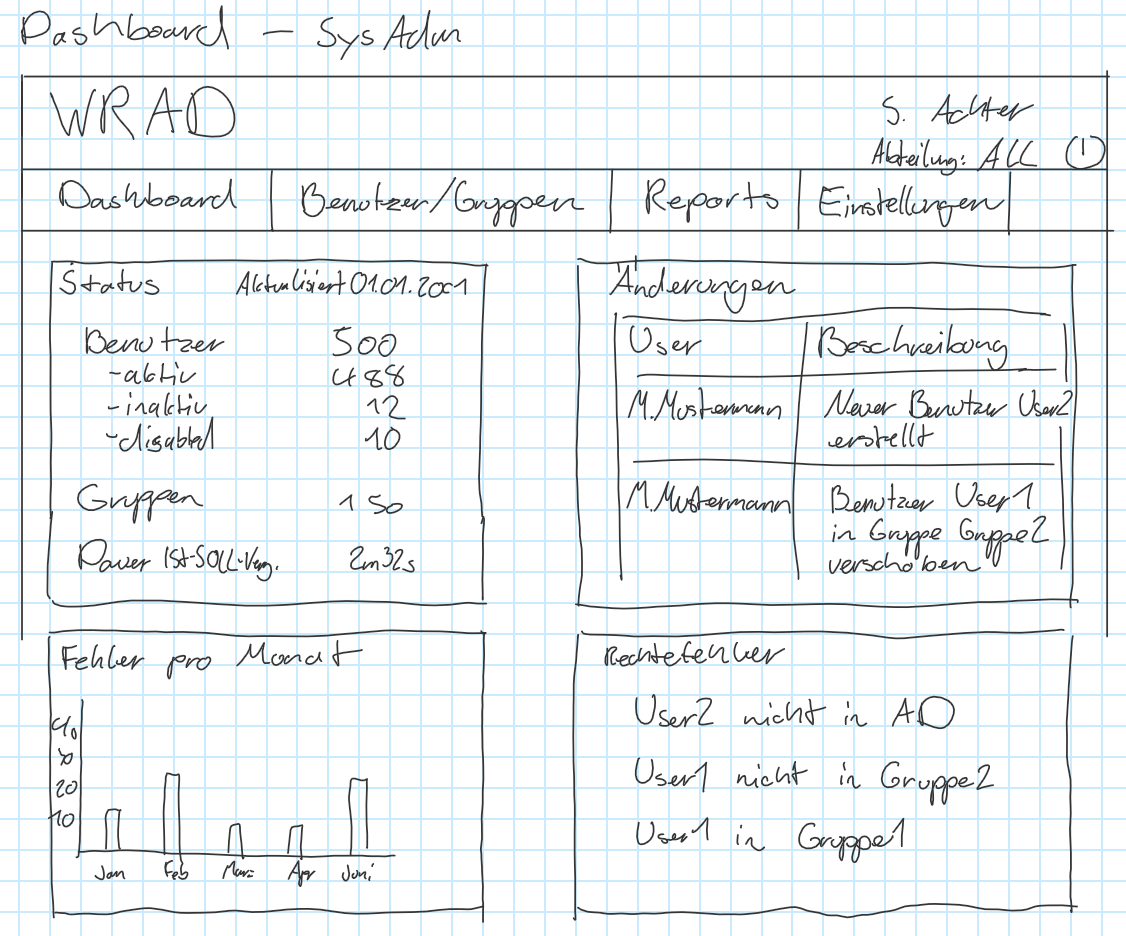 Dashboard – SysAdm
WRAD
S. Achter
Abteilung: ALL
Dashboard
Benutzer/Gruppen
Reports
Einstellungen
Status Aktualisiert 01.01.2001
Benutzer 500
-aktiv 488
-inaktiv 12
-disabled 10
Gruppen 150
Dauer IST-SOLL-Verg. 2m32s
Änderungen
User Beschreibung
M.Mustermann Neuer Benutzer User2
erstellt
M.Mustermann Benutzer User1
in Gruppe Gruppe2
verschoben
Fehler pro Monat
40
30
20
10
Jan Feb März Apr Juni
Rechtefehler
User2 nicht in AD
User1 nicht in Gruppe2
User1 in Gruppe1